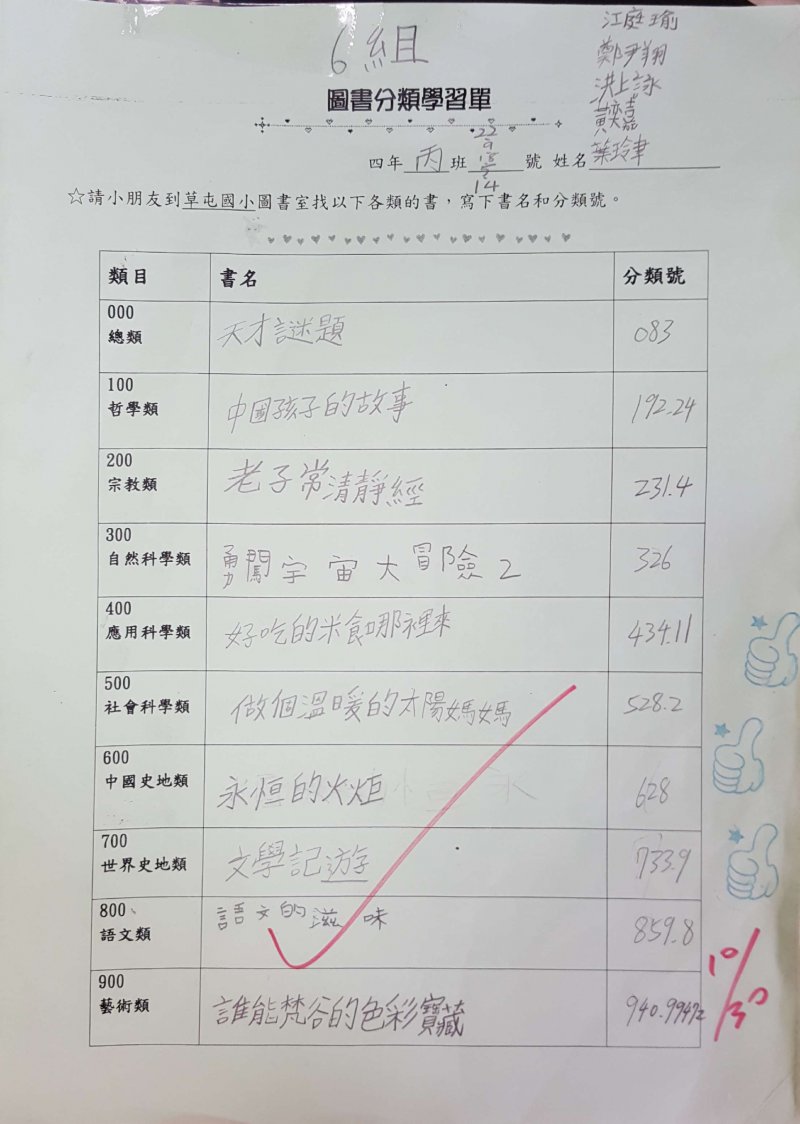 6組
江庭瑜
鄭尹翔
洪上詠
黃奕嘉
葉玲聿
圖書分類學習單
22
9
18
5
14
四年丙班 號 姓名
☆請小朋友到草屯國小圖書室找以下各類的書，寫下書名和分類號。
類目 書名 分類號
000
總類 天才謎題 083
100
哲學類 中國孩子的故事 192.24
200
宗教類 老子常清靜經 231.4
300
自然科學類 勇闖宇宙大冒險2 326
400
應用科學類 好吃的米食哪裡來 434.11
500
社會科學類 做個溫暖的太陽媽媽 528.2
600
中國史地類 永恒的火炬 628
700
世界史地類 文學記遊 733.9
800
語文類 語文的滋味 859.8
900
藝術類 誰能梵谷的色彩寶藏 940.99472
10/30